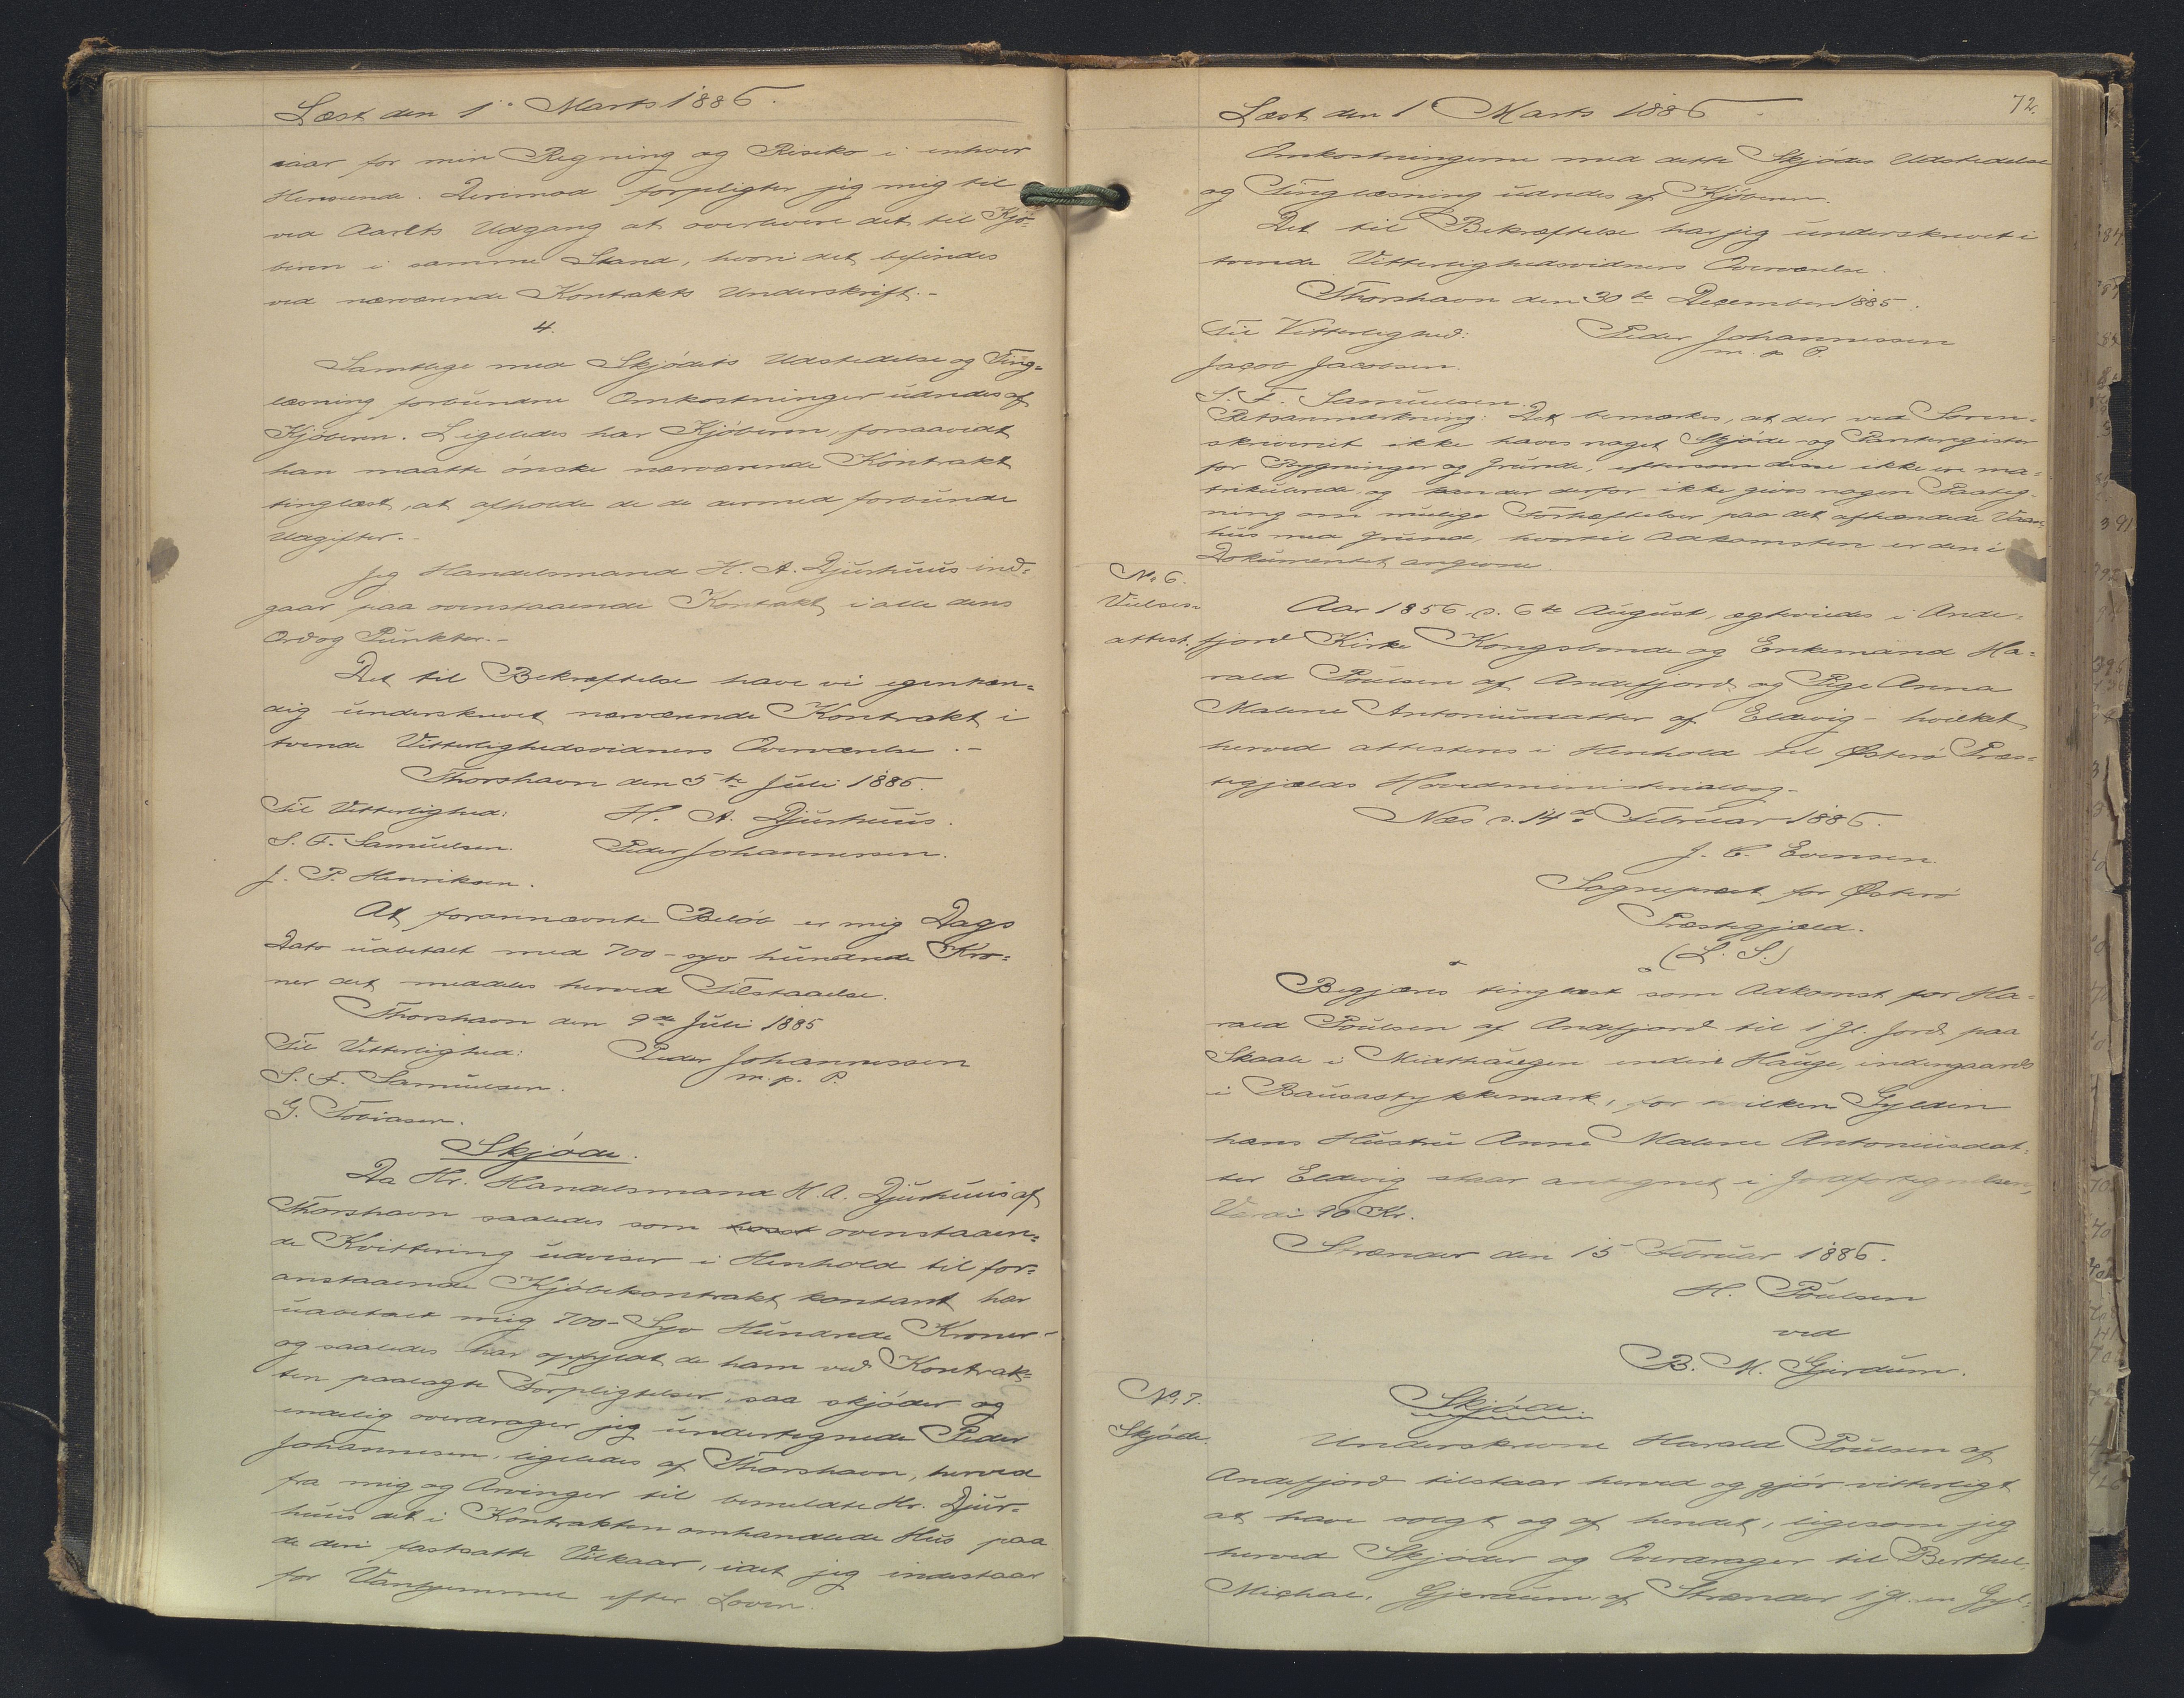 Læst den 1ᵉ Marts 1886.
staar for min Regning og Risiko i enhver
Henseende. Derimod forpligter jeg mig til
ved Aarets Udgang at overlevere det til Kjø=
beren i samme Stand, hvori det befindes
ved nærværende Kontrakts Underskrift.-
4.
Samtlige med Skjødets Udstedelse og Ting=
læsning forbundne Omkostninger udredes af
Kjøberen. Ligeledes har Kjøberen, forsaavidt
han maatte ønske nærværende Kontrakt
tinglæst, at afholde de de dermed forbundne
Udgifter.-
Jeg Handelsmand H. A. Djurhuus ind=
gaar paa ovenstaaende Kontrakt i alle dens
Ord og Punkter.-
Det til Bekræftelse have vi egenhæn=
dig underskrevet nærværende Kontrakt i
tvende Vitterlighedsvidners Overværelse.-
Thorshavn den 5te Juli 1885.
Til Vitterlighed: H. A. Djurhuus.
S. F. Samuelsen. Peder Johannesen.
J. P. Henriksen.
At forannævnte Beløb er mig Dags
Dato udbetalt med 700 - syv hundrede Kro=
ner det meddeles herved Tilstaaelse.
Thorshavn den 9de Juli 1885
Til Vitterlighed: Peder Johannessen
S. F. Samuelsen. m. p. P.
G. Tobiasen.
Skjøde.
Da Hr. Handelsmand H. A. Djurhuus af
Thorshavn saaledes som ovenstaaen=
de Kvittering udviser i Henhold til for=
anstaaende Kjøbekontrakt kontant har
udbetalt mig 700 - Syv Hundrede Kroner -
og saaledes har opfyldt de ham ved Kontrak=
ten paalagte Forpligtelser, saa skjøder og
endelig overdrager jeg undertegnede Peder
Johannesen, ligeledes af Thorshavn, herved
fra mig og Arvinger til bemeldte Hr. Djur=
huus det i Kontrakten omhandlede Hus paa
de deri fastsatte Vilkaar, idet jeg indestaar
for Vanhjemmel efter Loven.
72.
Læst den 1 Marts 1886.
Omkostningerne med dette Skjødes Udstedelse
og Tinglæsning udredes af Kjøberen.
Det til Bekræftelse har jeg underskrevet i
tvende Vitterlighedsvidners Overværelse.
Thorshavn den 30te December 1885.
Til Vitterlighed: Peder Johannessen
Jacob Jacobsen. m. p. P.
S. F. Samuelsen.
Retsanmærkning: Det bemærkes, at der ved Soren=
skriveriet ikke haves noget Skjøde- og Panteregister
for Bygninger og Grunde, eftersom disse ikke ere ma=
trikulerede, og kan der derfor ikke gives nogen Paateg=
ning om mulige Forhæftelser paa det afhændede Vaan=
hus med Grund, hvortil Adkomsten er den i
Dokumentet angivne.
No 6.
Vielses=
attest.
Aar 1856 d. 6te August, ægteviedes i Ande=
fjord Kirke Kongsbonde og Enkemand Ha=
rald Poulsen af Andefjord og Pige Anna
Malene Antoniusdatter af Eldevig - hvilket
herved attesteres i Henhold til Østerø Præs=
tegjælds Hovedministerialbog.-
Næs d. 14de Februar 1886.
J. C. Evensen.
Sognepræst for Østerø
Præstegjæld.
(L. S.)
Begjæres tinglæst som Adkomst for Ha=
rald Poulsen af Andefjord til 1 Gl. Jord paa
Skaale i Midthaugen endire Hauge, indengaards
i Bausastykkemark, for hvilken Gylden
hans Hustru Anne Malene Antoniusdat=
ter Eldevig staar antegnet i Jordfortegnelsen,
Værdi 90 Kr.
Strænder den 15 Februar 1886.
H. Poulsen
ved
B. M. Gjerdum.
No 7.
Skjøde.
Skjøde.
Underskrevne Harald Poulsen af
Andefjord tilstaar herved og gjør vitterligt
at have solgt og af hendet, ligesom jeg
herved Skjøder og Overdrager til Berthel
Michal. Gjerdum, af Strænder 1 Gl. en Gyl=